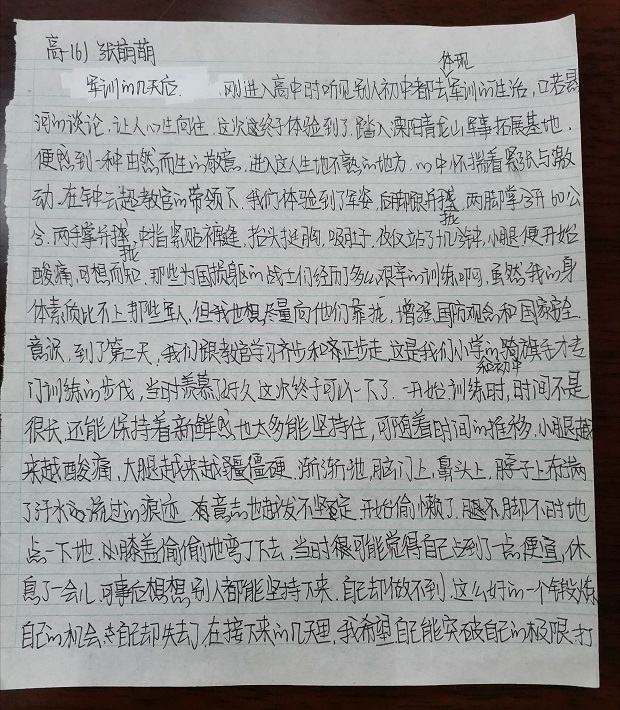 高一(6) 张萌萌
体现
军训的几天后. 刚进入高中时听见别人初中都去军训的生活, 口若悬
河的谈论, 让人心生向往. 这次这终于体验到了. 踏入溧阳青龙山军事拓展基地,
便感到一种由然而生的敬意, 进入这人生地不熟的地方. 心中怀揣着紧张与激
动. 在钟云超教官的带领下, 我们体验到了军姿, 后脚跟并拢, 两脚掌分开60公
分, 两手掌并拢, 中指紧贴裤缝, 抬头挺胸, 吸肚子, 仅仅站了十几分钟, 小腿便开始
酸痛, 可想而知, 那些为国捐躯的战士们经历多么艰辛的训练啊, 虽然我的身
体素质比不上那些军人, 但我也想尽量向他们靠拢, 增强国防观念和国家安全
意识, 到了第二天, 我们跟教官学习齐步和齐正步走. 这是我们小学的骑旗手才专
和初中
门训练的步伐, 当时羡慕了好久这次终于可以一下了. 一开始训练时, 时间不是
很长, 还能保持着新鲜感也大多能坚持住, 可随着时间的推移, 小腿越
来越酸痛, 大腿越来越疆僵硬. 渐渐地, 脑门上, 鼻头上, 脖子上布满
了汗水流过的痕迹. 有意志也越发不坚定. 开始偷懒了. 脚不时地
点一下地. 膝盖偷偷地弯了下去, 当时很可能觉得自己占到了一点便宜, 休
息了一会儿. 可事后想想, 别人都能坚持下来. 自己却做不到. 这么好的一个锻炼
自己的机会, 自己却失去了, 在接下来的几天里, 我希望自己能突破自己的极限, 打